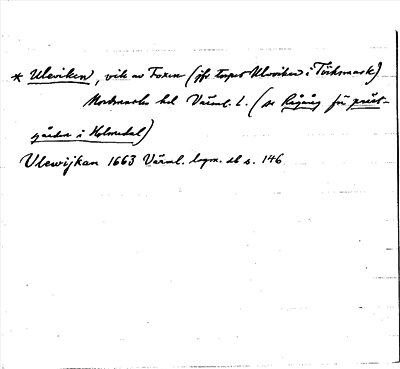 * Uleviken, vik av Foxen (jfr torpet Uleviken i Töcksmark)
Nordmarks hd Värml. l. (se Rågång för präst-
gården i Holmedal)
Ulewijkan 1663 Värml. lagm. db s. 146